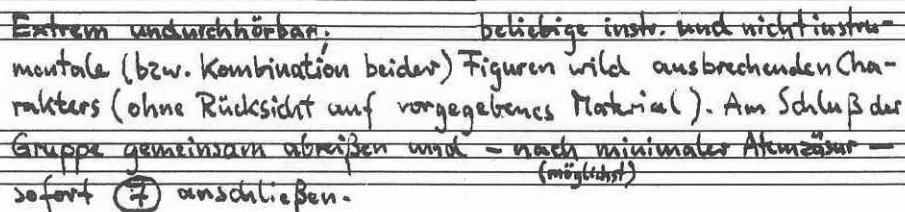 Extrem undurchhörbar: beliebige instr. und nicht instru-
mentale (bzw. Kombination beider) Figuren wild ausbrechenden Cha-
rakters (ohne Rücksicht auf vorgegebenes Material). Am Schluß der
Gruppe gemeinsam abreißen und – nach minimaler Atemzäsur –
(möglichst)
sofort 7 anschließen.